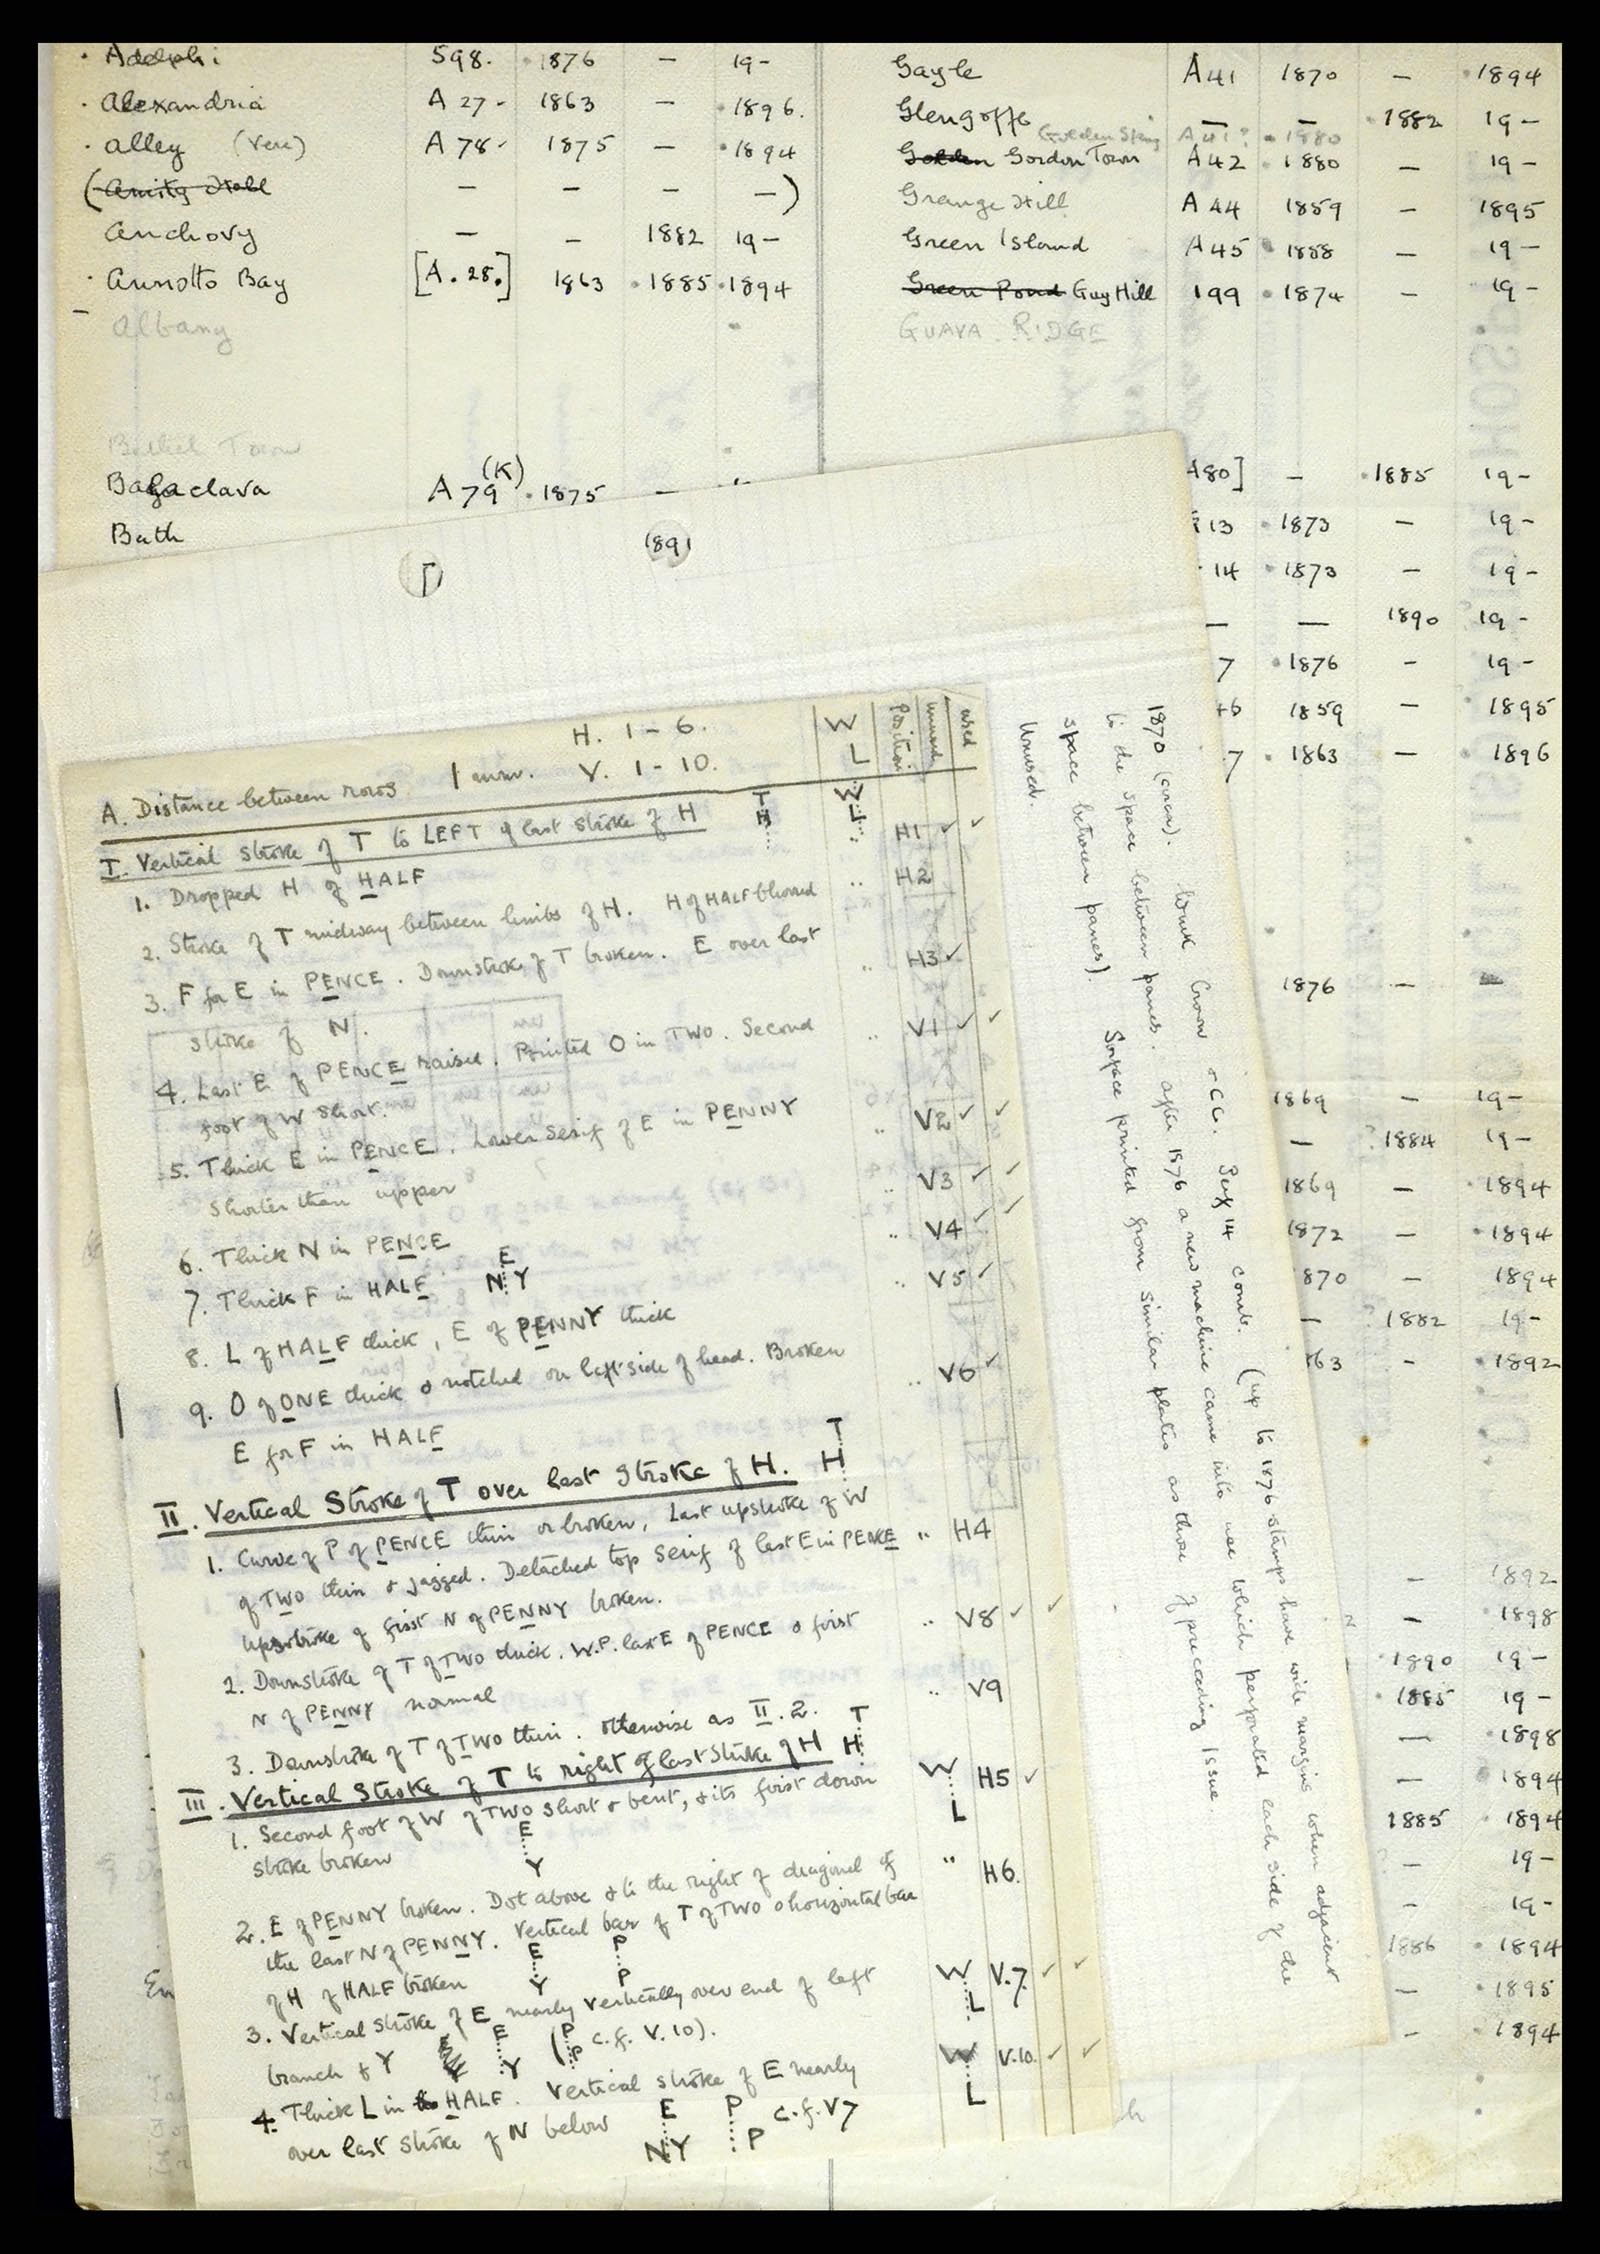 · Adelphi 598. · 1876 — 19-
· Alexandria A 27- 1863 — · 1896.
· Alley (Vere) A 78- 1875 — · 1894
(Amity Hall — — — —)
Anchovy — — 1882 19-
· Annotto Bay [A. 28.] 1863 · 1885 · 1894
Albany
Bethel Town
Balaclava A 79 (K) · 1875 —
Bath
Gayle A 41 1870 — · 1894
Glengoffe — — · 1882 19-
Golden Spring A 41? · 1880
Golden Gordon Town A 42 · 1880 — 19-
Grange Hill A 44 1859 — 1895
Green Island A 45 · 1858 — 19-
Green Pond Guy Hill 199 · 1874 — 19-
GUAVA RIDGE
A80] — · 1885 19-
13 · 1873 — 19-
14 · 1873 — 19-
— — 1890 19-
7 · 1876 — 19-
46 1859 — · 1895
7 · 1863 — · 1896
1876 —
1869 — 19-
— ? 1884 19-
1869 — · 1894
1872 — · 1894
1870 — 1894
— ? 1882 19-
63 — · 1892
— 1892
— · 1898
· 1890 19-
· 1885 19-
— · 1898
— · 1894
1885 · 1894
— 19-
— 19-
1886 · 1894
— · 1895
— · 1894
1891
H. 1-6.
1 mm. V. 1-10.
W
L
Position
unused
used
A. Distance between rows
I. Vertical stroke of T to LEFT of last stroke of H
T
H
W
L
1. Dropped H of HALF H1 ✓ ✓
2. Stroke of T midway between limbs of H. H of HALF blurred .. H2
3. F for E in PENCE. Downstroke of T broken. E over last .. H3 ✓
stroke of N.
4. Last E of PENCE raised. Pointed O in TWO. Second .. V1 ✓ ✓
foot of W short.
5. Thick E in PENCE. Lower serif of E in PENNY .. V2 ✓ ✓
shorter than upper
6. Thick N in PENCE .. V3 ✓ ✓
7. Thick F in HALF .. V4 ✓ ✓
E
NY
8. L of HALF thick, E of PENNY thick .. V5 ✓
9. O of ONE thick & notched on left side of head. Broken .. V6 ✓
E for F in HALF
II. Vertical Stroke of T over last stroke of H.
T
H
1. Curve of P of PENCE thin or broken, Last upstroke of W
of TWO thin & jagged. Detached top serif of last E in PENCE .. H4
upstroke of first N of PENNY broken.
2. Downstroke of T of TWO thick. W.P. last E of PENCE & first .. V8 ✓ ✓
N of PENNY normal
3. Downstroke of T of TWO thin. otherwise as II. 2. .. V9
III. Vertical Stroke of T to right of last stroke of H
T
H
1. Second foot of W of TWO short & bent, & its first down W L H5 ✓
stroke broken
E
Y
2. E of PENNY broken. Dot above & to the right of diagonal of " H6.
the last N of PENNY. Vertical bar of T of TWO & horizontal bar
of H of HALF broken
E
Y
P
P
3. Vertical stroke of E nearly vertically over end of left W L V.7. ✓ ✓
branch of Y
E
Y
(P P c.f. V.10).
4. Thick L in HALF. Vertical stroke of E nearly W L V.10. ✓ ✓
over last stroke of N below
E
NY
P
P
c.f. V7
1870 (circa). Wmk Crown & CC. Perf 14 comb. (up to 1876 stamps have wide margins when adjacent
to the space between panes. after 1876 a new machine came into use which perforated each side of the
space between panes) Surface printed from similar plates as those of preceding issue.
Unused.